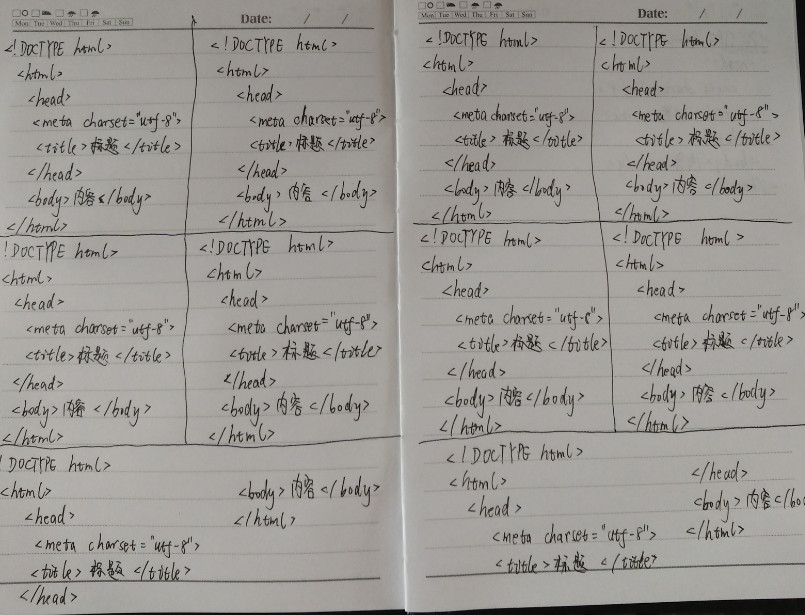 Mon Tue Wed Thu Fri Sat Sun
Date: / /
<!DOCTYPE html>
<html>
<head>
<meta charset="utf-8">
<title>标题</title>
</head>
<body>内容</body>
</html>
<!DOCTYPE html>
<html>
<head>
<meta charset="utf-8">
<title>标题</title>
</head>
<body>内容</body>
</html>
!DOCTYPE html>
<html>
<head>
<meta charset="utf-8">
<title>标题</title>
</head>
<body>内容</body>
</html>
<!DOCTYPE html>
<html>
<head>
<meta charset="utf-8">
<title>标题</title>
</head>
<body>内容</body>
</html>
! DOCTYPE html>
<html>
<head>
<meta charset="utf-8">
<title>标题</title>
</head>
<body>内容</body>
</html>
Mon Tue Wed Thu Fri Sat Sun
Date: / /
<!DOCTYPE html>
<html>
<head>
<meta charset="utf-8">
<title>标题</title>
</head>
<body>内容</body>
</html>
<!DOCTYPE html>
<html>
<head>
<meta charset="utf-8">
<title>标题</title>
</head>
<body>内容</body>
</html>
<!DOCTYPE html>
<html>
<head>
<meta charset="utf-8">
<title>标题</title>
</head>
<body>内容</body>
</html>
<!DOCTYPE html>
<html>
<head>
<meta charset="utf-8">
<title>标题</title>
</head>
<body>内容</body>
</html>
<!DOCTYPE html>
<html>
<head>
<meta charset="utf-8">
<title>标题</title>
</head>
<body>内容</bo
</html>